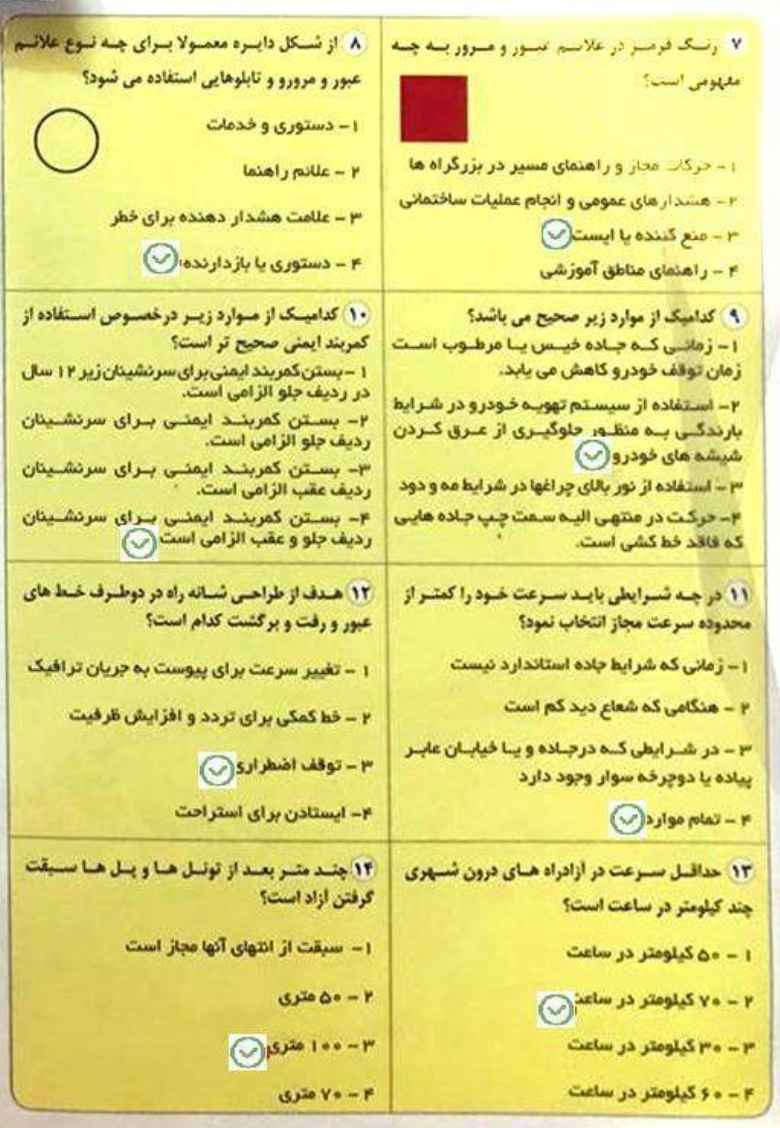 ۷ رنگ قرمز در علائم عبور و مرور به چه
مفهومی است؟
۱ - حرکات مجاز و راهنمای مسیر در بزرگراه ها
۲ - هشدارهای عمومی و انجام عملیات ساختمانی
۳ - منع کننده یا ایست
۴ - راهنمای مناطق آموزشی
۸ از شکل دایره معمولا برای چه نوع علائم
عبور و مرورو و تابلوهایی استفاده می شود؟
۱ - دستوری و خدمات
۲ - علائم راهنما
۳ - علامت هشدار دهنده برای خطر
۴ - دستوری یا بازدارنده
۹ کدامیک از موارد زیر صحیح می باشد؟
۱ - زمانی که جاده خیس یا مرطوب است
زمان توقف خودرو کاهش می یابد.
۲- استفاده از سیستم تهویه خودرو در شرایط
بارندگی به منظور جلوگیری از عرق کردن
شیشه های خودرو
۳ - استفاده از نور بالای چراغها در شرایط مه و دود
۴- حرکت در منتهی الیه سمت چپ جاده هایی
که فاقد خط کشی است.
۱۰ کدامیک از موارد زیر درخصوص استفاده از
کمربند ایمنی صحیح تر است؟
۱ - بستن کمربند ایمنی برای سرنشینان زیر ۱۲ سال
در ردیف جلو الزامی است.
۲- بستن کمربند ایمنی برای سرنشینان
ردیف جلو الزامی است.
۳- بستن کمربند ایمنی برای سرنشینان
ردیف عقب الزامی است.
۴- بستن کمربند ایمنی برای سرنشینان
ردیف جلو و عقب الزامی است
۱۱ در چه شرایطی باید سرعت خود را کمتر از
محدوده سرعت مجاز انتخاب نمود؟
۱ - زمانی که شرایط جاده استاندارد نیست
۲ - هنگامی که شعاع دید کم است
۳ - در شرایطی که درجاده و یا خیابان عابر
پیاده یا دوچرخه سوار وجود دارد
۴ - تمام موارد
۱۲ هدف از طراحی شانه راه در دوطرف خط های
عبور و رفت و برگشت کدام است؟
۱ - تغییر سرعت برای پیوست به جریان ترافیک
۲ - خط کمکی برای تردد و افزایش ظرفیت
۳ - توقف اضطراری
۴- ایستادن برای استراحت
۱۳ حداقل سرعت در آزادراه های درون شهری
چند کیلومتر در ساعت است؟
۱ - ۵۰ کیلومتر در ساعت
۲ - ۷۰ کیلومتر در ساعت
۳ - ۳۰ کیلومتر در ساعت
۴ - ۶۰ کیلومتر در ساعت
۱۴ چند متر بعد از تونل ها و پل ها سبقت
گرفتن آزاد است؟
۱- سبقت از انتهای آنها مجاز است
۲ - ۵۰ متری
۳ - ۱۰۰ متری
۴ - ۷۰ متری